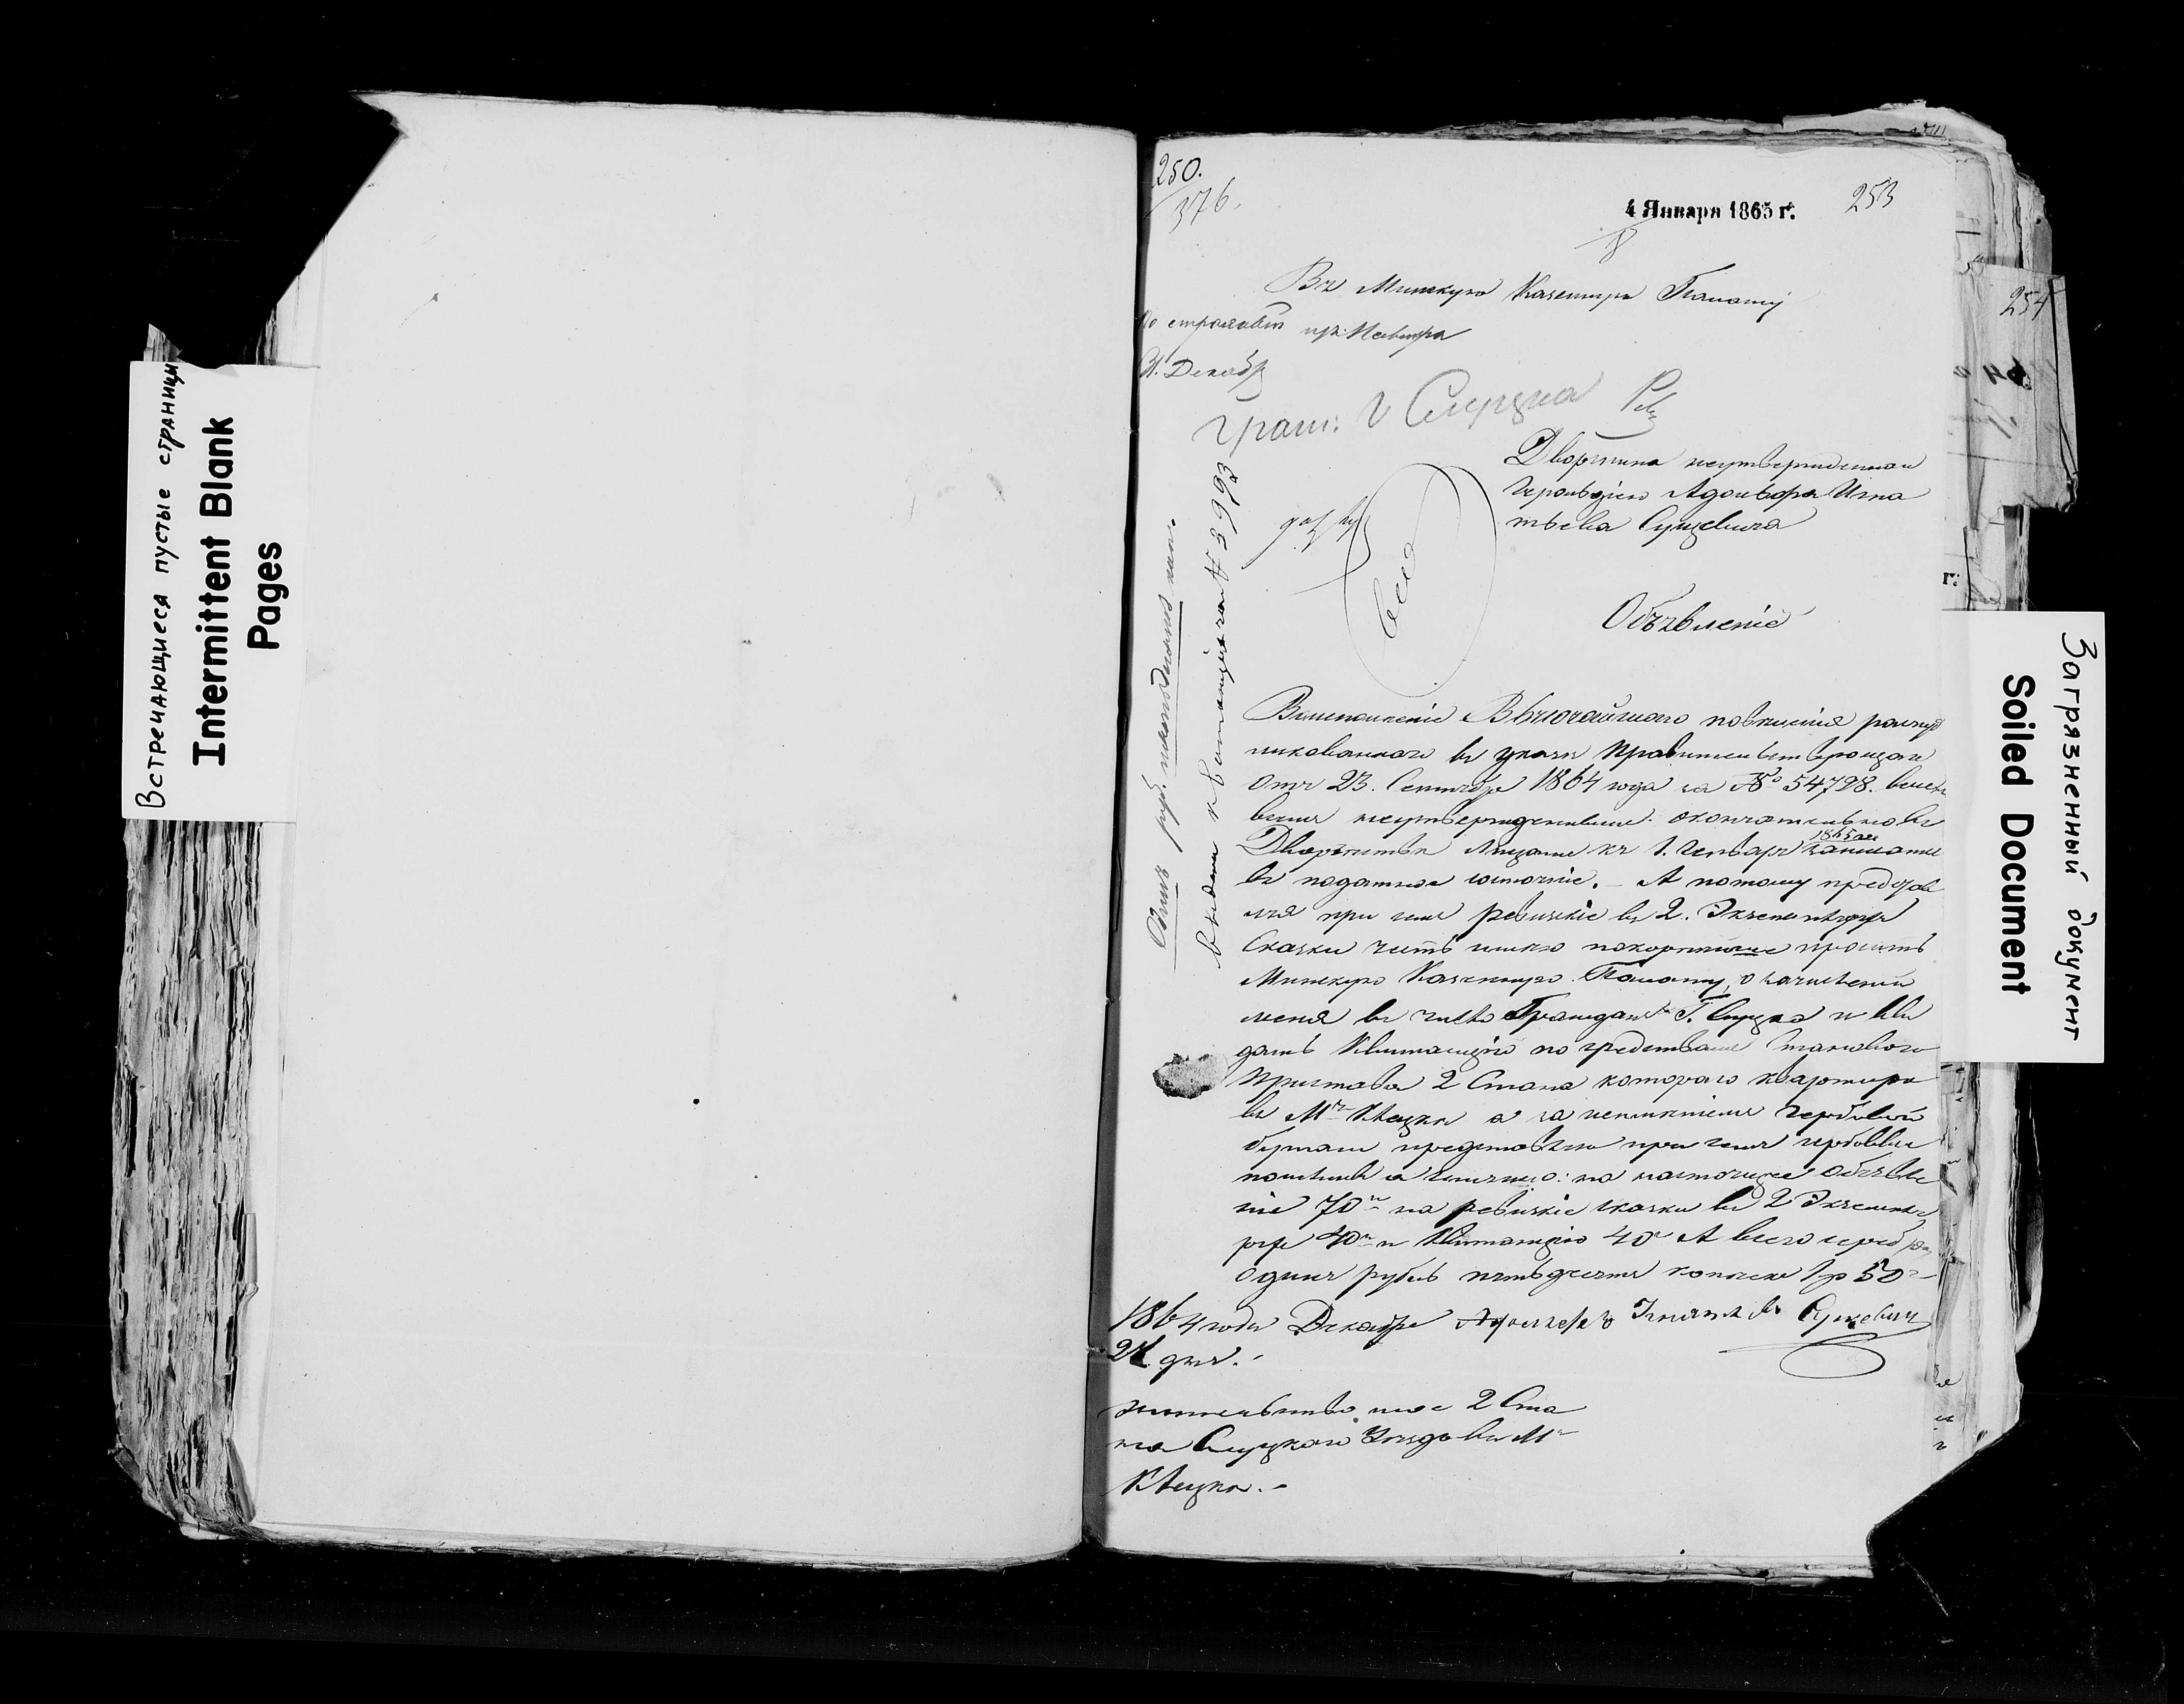 Встречающиеся пустые страницы
Intermittent Blank
Pages
250.
376.
4 Января 1865 г.
253
8
254
Въ Минскую Казенную Палату
Декабр
граж: г Слуцка Рев
Дворянина неутвержденнаго
Герольдіею Адольфа Игна
тьева Сущевича
Объявленіе
выдана квитанція за № 5993
Одинъ руб.
Высочайшаго повеленія распуб
ликованнаго въ указе Правительствующаго
отъ 23. Сентября 1864 года за № 54728.
неутвержденные окончательно въ
Дворянстве къ 1. Генваря 1865 записатся
въ податное состояніе. А потому представ
ляя при семъ ревизкіе въ 2. Экземплярахъ
Сказки честь имею покорнейше просить
Минскую Казенную Палату, о зачисленіи
меня въ число Гражданъ Г. Слуцка и вы
дать Квитанцію по средствамъ Становаго
Пристава 2 Стана котораго квартира
въ Мъ Клецке а за неименіемъ гербовой
бумаги представляю при семъ гербовые
пошлины а именно: на настоящее объявле
ніе 70 к на ревизкіе сказки въ 2 Экземпля
рахъ 40 к и Квитанцію 40 к А всего сереб
одинъ рубль пятьдесятъ копеекъ 1 р 50
1864 года Декабря Адольфъ Игнатьевъ Сущевич
дня.
жительство 2 Ста
на Слуцкаго Уезда въ М
Клецке.
Загрязненный документ
Soiled Document